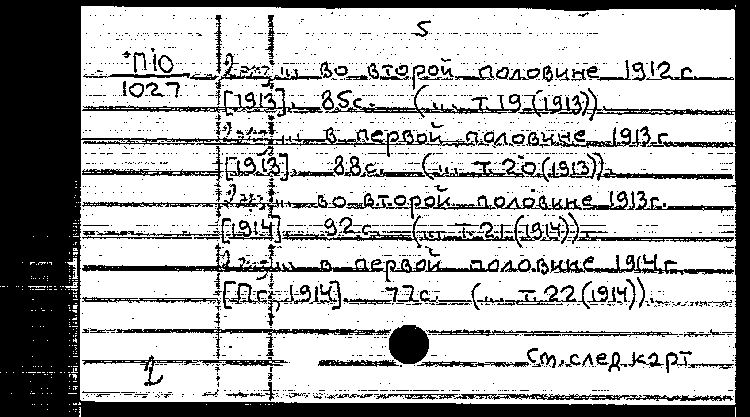 5
*П10 во второй половине 1912 г.
1027 [1913]. 85с. (... т.19 (1913)).
в первой половине 1913 г.
[1913]. 88с. (... т.20 (1913)).
во второй половине 1913г.
[1914] 92.с. (... т.21 (1914)).
в первой половине 1914 г.
[Пг, 1914]. 77с. (... т.22 (1914)).
См. след карт
2